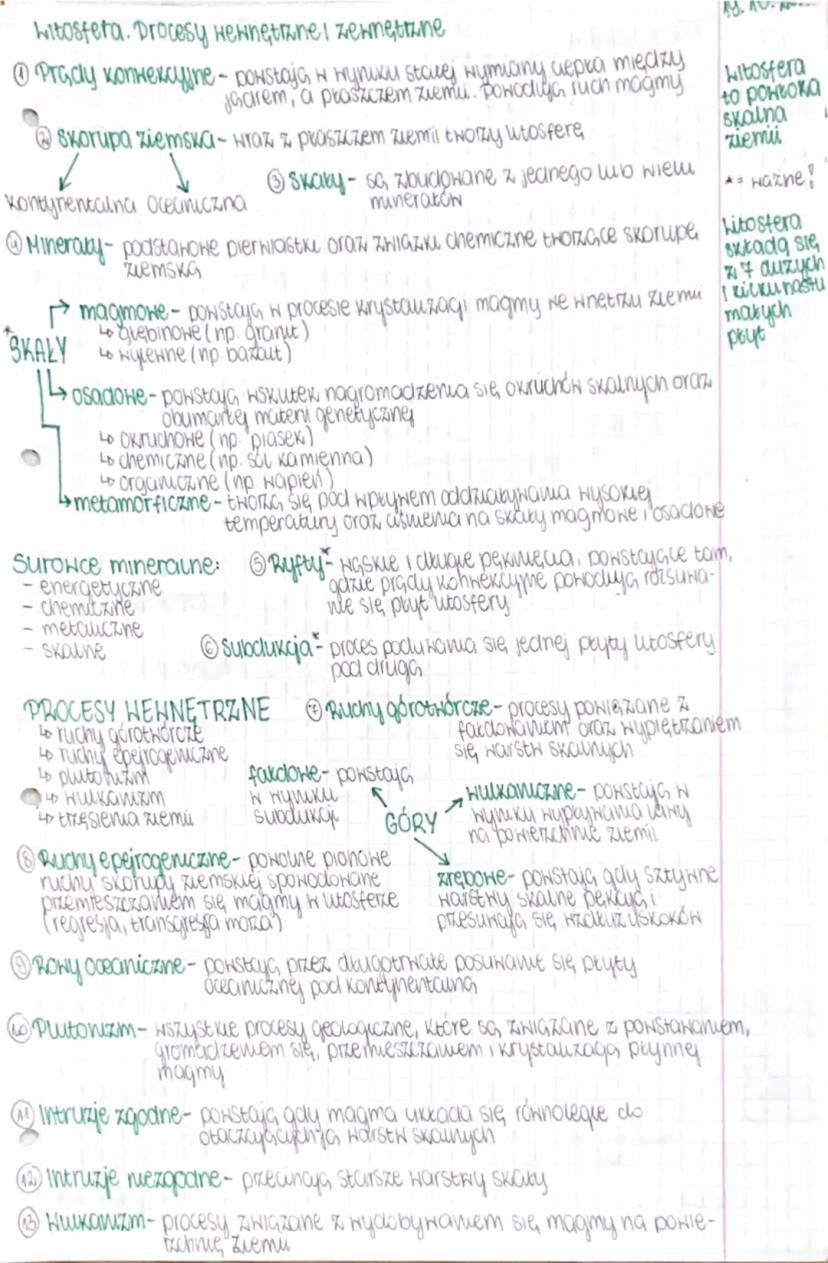 Litosfera. Procesy wewnętrzne i zewnętrzne
① Prądy konwekcyjne - powstają w wyniku stałej wymiany ciepła między
jądrem, a płaszczem ziemii. Powodują ruch magmy
② Skorupa ziemska - wraz z płaszczem ziemii tworzy litosferę
kontynentalna oceaniczna
③ Skały - są zbudowane z jednego lub wielu
minerałów
④ Minerały - podstawowe pierwiastki oraz związki chemiczne tworzące skorupę
ziemską
*SKAŁY
→ magmowe - powstają w procesie krystalizacji magmy we wnętrzu ziemii
↳ głębinowe (np. granit)
↳ wylewne (np. bazalt)
↳ osadowe - powstają wskutek nagromadzenia się okruchów skalnych oraz
obumarłej materii genetycznej
↳ okruchowe (np. piasek)
↳ chemiczne (np. sól kamienna)
↳ organiczne (np. wapień)
→ metamorficzne - tworzą się pod wpływem oddziaływania wysokiej
temperatury oraz ciśnienia na skały magmowe i osadowe
Surowce mineralne:
- energetyczne
- chemiczne
- metaliczne
- skalne
⑤ Ryfty* - wąskie i długie pęknięcia, powstające tam,
gdzie prądy konwekcyjne powodują rozsuwa-
nie się płyt litosfery
⑥ Subdukcja* - proces podsuwania się jednej płyty litosfery
pod drugą
PROCESY WEWNĘTRZNE
↳ ruchy górotwórcze
↳ ruchy epejrogeniczne
↳ plutonizm
↳ wulkanizm
↳ trzęsienia ziemii
⑦ Ruchy górotwórcze - procesy powiązane z
fałdowaniem oraz wypiętrzaniem
się warstw skalnych
GÓRY
fałdowe - powstają
w wyniku
subdukcji
wulkaniczne - powstają w
wyniku wypływania lawy
na powierzchnie ziemii
zrębowe - powstają gdy sztywne
warstwy skalne pękają i
przesuwają się wzdłuż uskoków
⑧ Ruchy epejrogeniczne - powolne pionowe
ruchy skorupy ziemskiej spowodowane
przemieszczaniem się magmy w litosferze
(regresja, transgresja morza)
⑨ Rowy oceaniczne - powstają przez długotrwałe posuwanie się płyty
oceanicznej pod kontynentalną
⑩ Plutonizm - wszystkie procesy geologiczne, które są związane z powstawaniem,
gromadzeniem się, przemieszczaniem i krystalizacją płynnej
magmy
⑪ Intruzje zgodne - powstają gdy magma układa się równolegle do
otaczających ją warstw skalnych
⑫ Intruzje niezgodne - przecinają starsze warstwy skały
⑬ Wulkanizm - procesy związane z wydobywaniem się magmy na powie-
rzchnię ziemii
Litosfera
to powłoka
skalna
ziemii
* = ważne!
Litosfera
składa się
z 7 dużych
i kilkunastu
małych
płyt